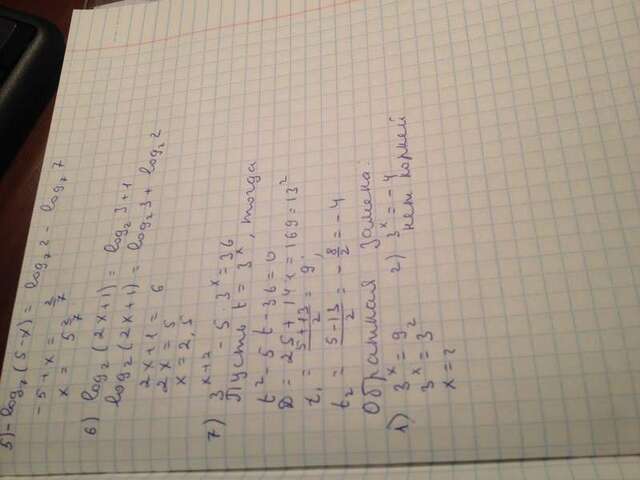 5) -log₇(5-x) = log₇2 - log₇7
-5+x = 2/7
x = 5 2/7
6) log₂(2x+1) = log₂3+1
log₂(2x+1) = log₂3 + log₂2
2x+1 = 6
2x = 5
x = 2,5
7) 3ˣ⁺² - 5·3ˣ = 36
Пусть t = 3ˣ, тогда
t² - 5t - 36 = 0
D = 25 + 144 = 169 = 13²
t₁ = (5+13)/2 = 9;
t₂ = (5-13)/2 = -8/2 = -4
Обратная замена:
1) 3ˣ = 9 2) 3ˣ = -4
3ˣ = 3² нет корней
x = 2